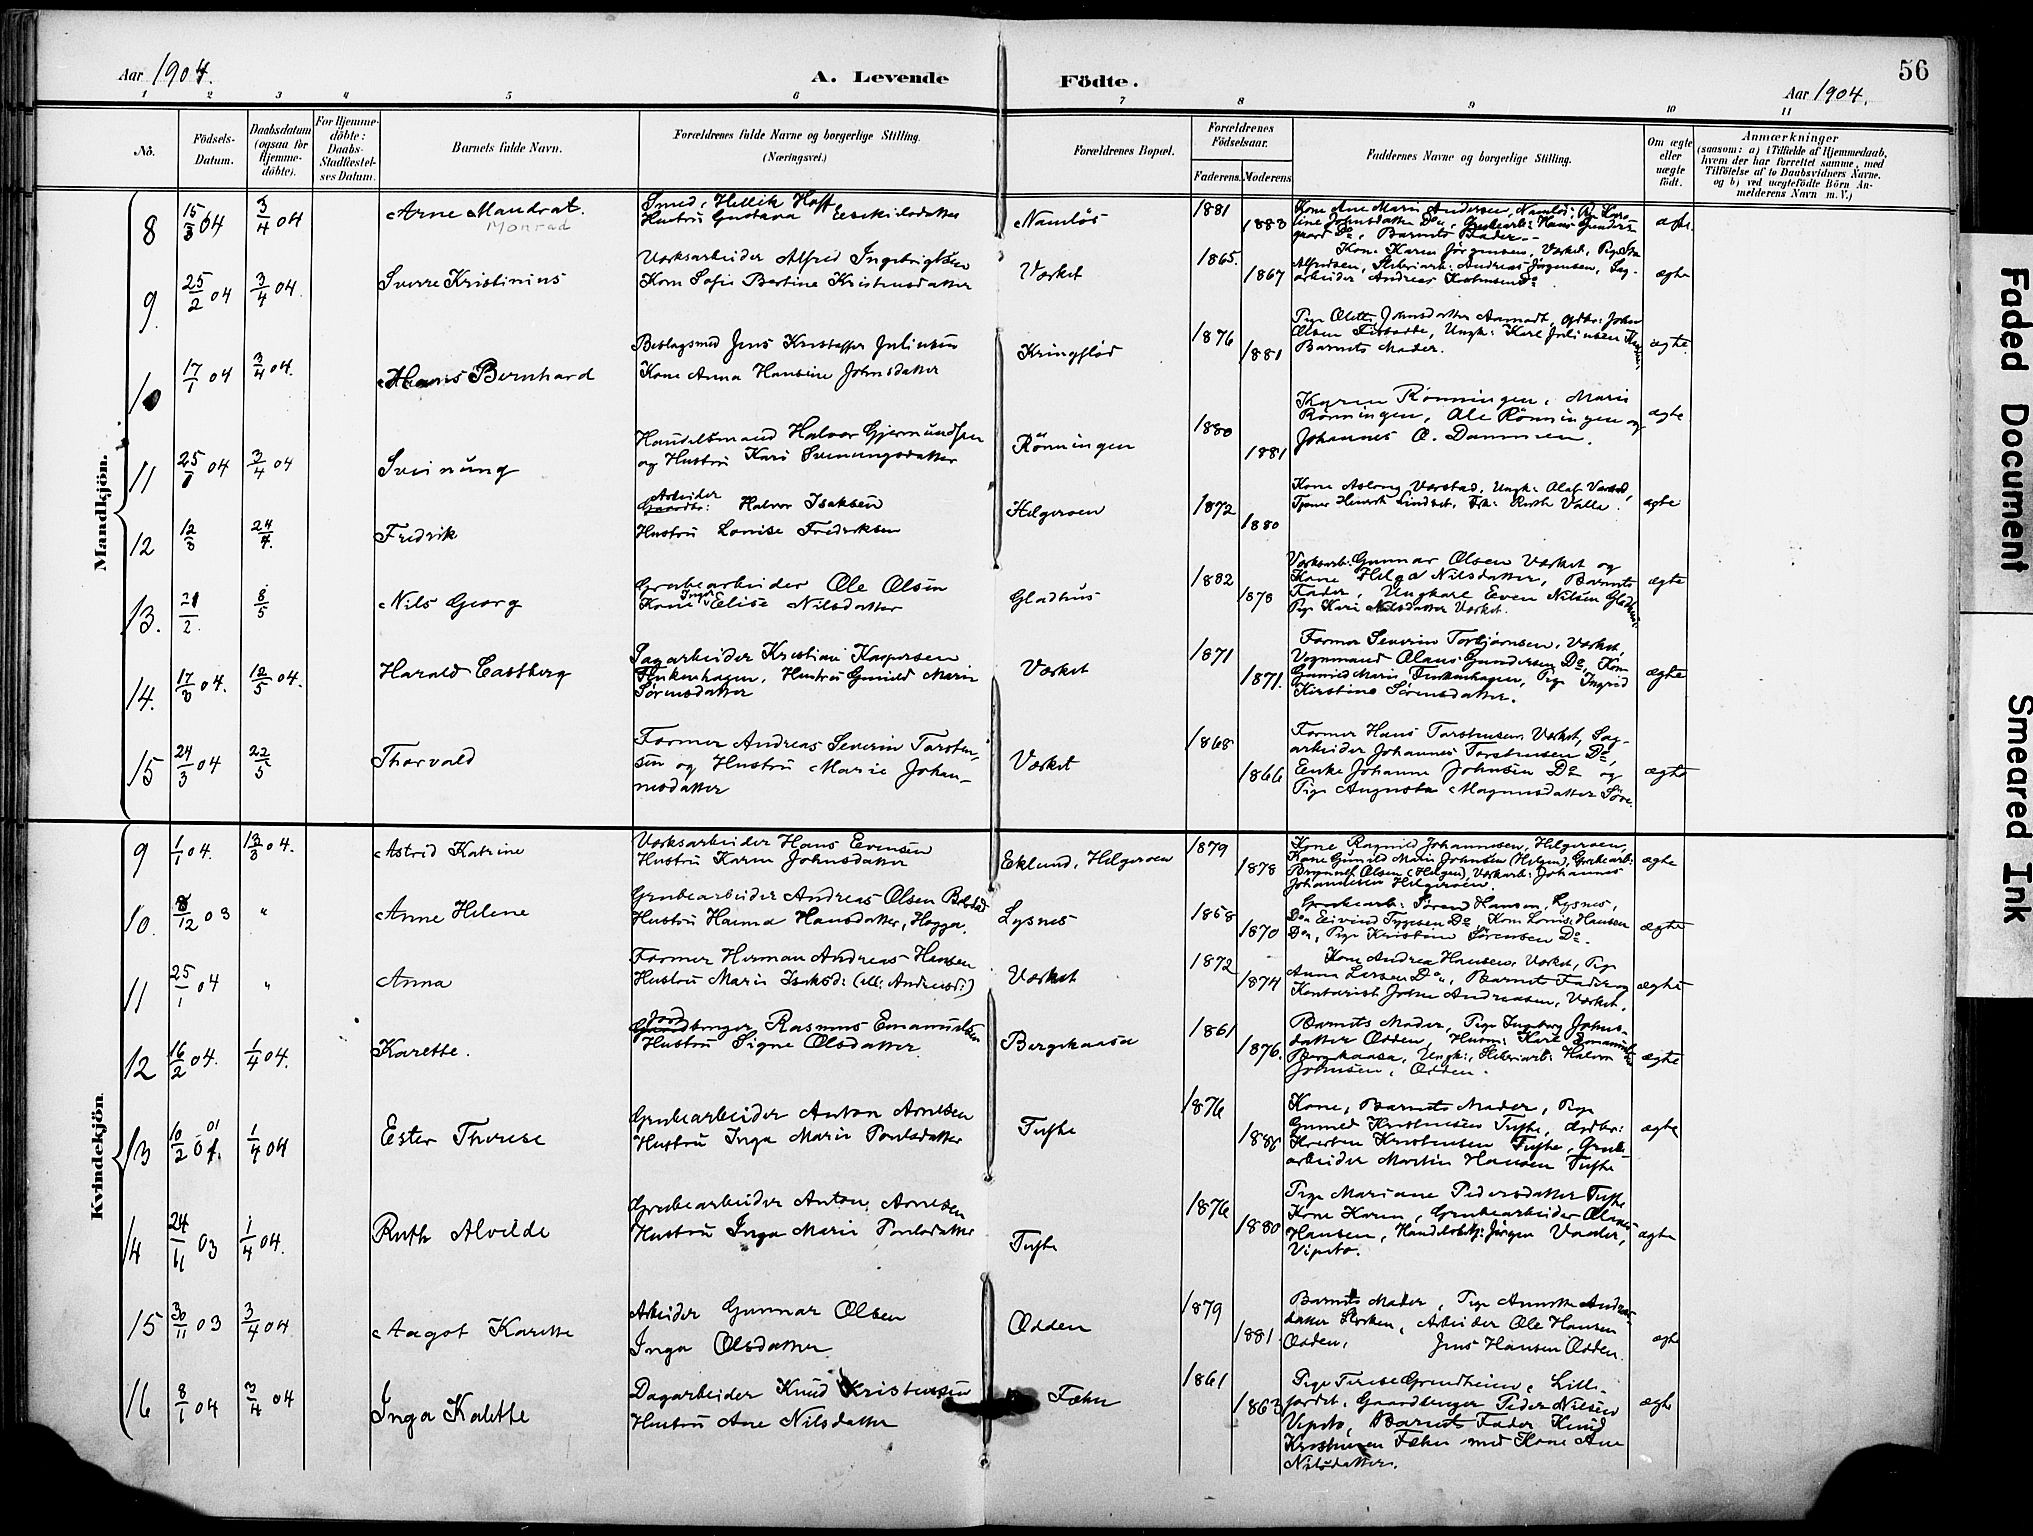 Aar 1904.
A. Levende Födte.
56
Aar 1904.
1 2 3 4 5 6 7 8 9 10 11
No.
Födsels-Datum.
Daabsdatum (ogsaa for Hjemme-döbte).
For Hjemme-döbte: Daabs-Stadfæstel-ses Datum.
Barnets fulde Navn.
Forældrenes fulde Navne og borgerlige Stilling.
(Næringsvei.)
Forældrenes Bopæl.
Forældrenes Födselsaar.
Faderens. Moderens
Faddernes Navne og borgerlige Stilling.
Om ægte eller uægte födt.
Anmærkninger
(saasom: a) i Tilfælde af Hjemmedaab, hvem der har forrettet samme, med Tilföielse af to Daabsvidners Navne, og b) ved uægtefödte Börn An-melderens Navn m. V.)
Mandkjön.
8 15/3 04 3/4 04 Arne Mandrat.
Monrad
Smed, Hellik Hoff
Hustru Gustava
Namløs 1881 1883
Kone Ane Marie Andersen, Namløs,
Barnets Fader
ægte
9. 25/2 04 3/4 04. Sverre Kristinius
Værksarbeider Alfred Ingebrigtsen
Kone Sofie Bertine Kristensdatter
Værket 1865. 1867
Kone Karen Jörgensen, Værket,
Andreas Jörgensen, Sag-
arbeider Andreas
ægte
10 17/1 04 3/4 04. Hans Bernhard
Beslagsmed Jens Kristoffer Juliusen
Kone Anna Hansine Johnsdatter
Kringflöd 1876 1881
Barnets Moder.
ægte
11 25/1 04 3/4 04 Sveinung
Handelsmand Halvor Gjermundsen
og Hustru Kari Sveinungsdatter
Rönningen 1880 1881
Karen Rönningen, Maria
Rönningen, Ole Rönningen og
Johannes O. Dammen.
ægte
12 12/3 24/4. Fredrik
Arbeider
Gaardbr: Halvor Isaksen
Hustru Lovise Fredriksen
Helgeroen 1872 1880
ægte
13. 21/2. 8/5 Nils Georg
Grubearbeider Ole Olsen
Kone Inga Elise Nilsdatter
Gladhus 1882 1878
Værksarb: Gunnar Olsen Værket og
Kone Helga Nilsdatter, Barnets
Fader, Ungkarl Even Nilsen
Pige Kari Nilsdatter Værket.
ægte
14. 17/3 04. 12/5 04. Harald Castberg
Sagarbeider Kristian Kaspersen
Finkenhagen, Hustru Gunild Marie
Sørensdatter
Værket 1871 1871.
Former Severin Torbjørnsen, Værket,
Vognmand Olaus Gundersen Do, Kone
Gunild Marie Finkenhagen, Pige Ingrid
Kirstine Sørensdatter.
ægte
15 24/3 04 22/5 Thorvald
Former Andreas Severin Torsten-
sen og Hustru Marie Johan-
nesdatter
Værket 1868 1866
Former Hans Torstensen Værket, Sag-
arbeider Johannes Torstensen Do,
Enke Johanne Johnsen Do og
Pige Augusta Magnusdatter
ægte
Kvindekjön
9 1/1 04. 13/3 04. Astrid Katrine
Værksarbeider Hans Evensen
Hustru Karen Johnsdatter
Eklund, Helgeroen 1879 1878
Kone Ragnild Johannesen, Helgeroen,
Kone Gunild Marie Johnsen (Helgen), Grubearb:
Brynulf Olsen (Helgen), Værksarb: Johannes
Johannesen Helgeroen.
ægte
10. 8/12 03 " Anne Helene
Grubearbeider Andreas Olsen
Hustru Hanna Hansdatter, Hogga.
Lysnes 1868 1870
Grubearb: Sørend Hansen, Lysnes,
Do Eivind Tygesen Do, Kone Lovise Hansen
Do, Pige Kristine Sørensen Do.
ægte
11 25/1 04 " Anna
Former Herman Andreas Hansen
Hustru Marie Isaksd: (ell: Andreasd:)
Værket 1872 1874
Kone Andrea Hansen, Værket, Pige
Anna Larsen Do, Barnets Fader og
Kontorist John Andreasen, Værket.
ægte
12 16/2 04. 1/4 04. Karette.
Jord
Gaardbruger Rasmus Emanuelsen
Hustru Signe Olsdatter
Bergekaasa 1861 1876.
Barnets Moder, Pige Ingeborg Johns-
datter Odden, Husm: Karl Emanuelsen
Bergekaasa, Ungk:, Halvor
Johnsen, Odden.
ægte
13 10/2 04. 01 1/4 04 Ester Therese
Grubearbeider Anton Arnesen
Hustru Inga Marie Poulsdatter
Tufte 1876 1880
Kone, Barnets Moder, Pige
Gunild Kristensen Tufte, Grdbr:
Kristen Kristensen Tufte, Grube-
arbeider Martin Hansen Tufte
ægte
14 24/11 03 1/4 04. Ruth Alvilde
Grubearbeider Anton Arnesen
Hustru Inga Marie Poulsdatter
Tufte 1876 1880
Pige Mariane Pedersdatter Tufte
Kone Karen, Grubearbeider Olaves
Hansen, Handelsbtj: Jörgen Vaader,
Vipeto.
ægte
15 30/11 03 3/4 04 Aagot Karette
Arbeider Gunnar Olsen
Inga Olsdatter
Odden 1879 1881
Barnets Moder, Pige Annette Andreas-
datter, Arbeider Ole Hansen
Odden, Jens Hansen Odden.
ægte
16 8/1 04 3/4 04 Inga Kalette
Dagarbeider Knud Kristensen
Hustru Ane Nilsdatter
Fæhn 1861 1863
Pige Terese Grundheim, Lille-
jordet, Gaardbruger Peder Nilsen
Vipeto, Barnets Fader Knud
Kristensen Fæhn med Kone Ane
Nilsdatter.
ægte
Faded Document
Smeared Ink